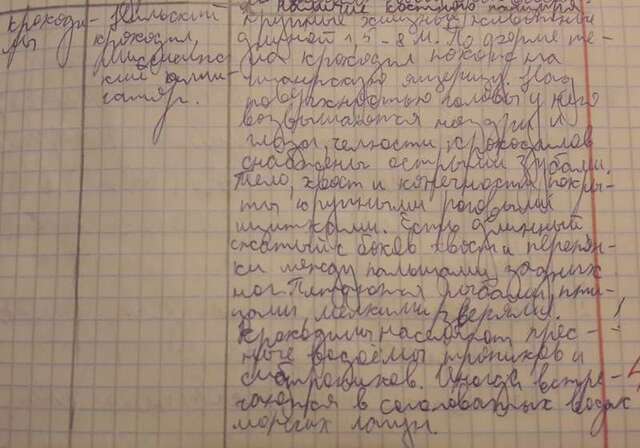 крокоди-
лы
Нильский
крокодил,
Миссисипс-
кий алли-
гатор.
наличие костного панциря
крупные хищные животные
длиной 1,5 - 8 м. По форме те-
ла крокодил похож на
гигантскую ящерицу. Над
поверхностью головы у него
возвышаются ноздри и
глаза, челюсти крокодилов
снабжены острыми зубами.
Тело, хвост и конечности покры-
ты крупными роговыми
щитками. Есть длинный
сжатый с боков хвост и перепон-
ки между пальцами задних
ног. Питаются рыбами, пти-
цами, мелкими зверями.
Крокодилы населяют прес-
ные водоёмы тропиков и
субтропиков. Иногда встре-
чаются в солоноватых водах
морских лагун.